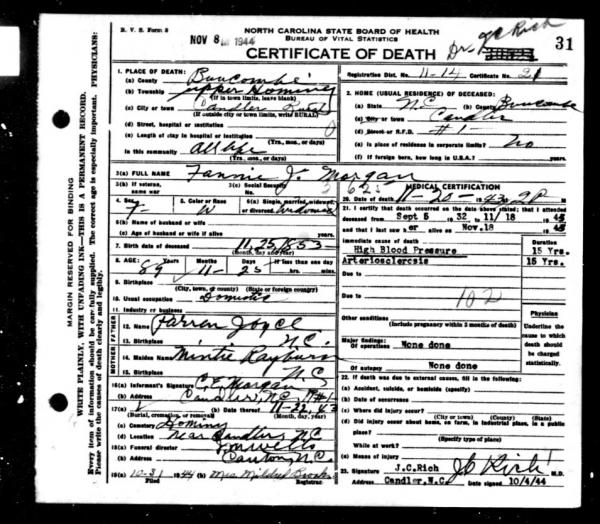 R. V. S. Form 8
NOV 8 1944
NORTH CAROLINA STATE BOARD OF HEALTH
BUREAU OF VITAL STATISTICS
CERTIFICATE OF DEATH
Dr. J C Rich
31
Registration Dist. No. 11-14 Certificate No. 21
1. PLACE OF DEATH:
(a) County Buncombe
(b) Township Upper Hominy
(If in town limits, leave blank)
(c) City or town Candler Rural
(If outside city or town limits, write RURAL)
(d) Street, hospital or institution
(e) Length of stay in hospital or institution
(Yrs., mos., or days)
In this community all life
(Yrs., mos., or days)
2. HOME (USUAL RESIDENCE) OF DECEASED:
(a) State N.C. (b) County Buncombe
(c) City or town Candler
(d) Street or R.F.D. #1
(e) Is place of residence in corporate limits? No
(f) If foreign born, how long in U.S.A.?
3. (a) FULL NAME Fannie J. Morgan
3. (b) If veteran, war
3. (c) Social Security No.
4. Sex F
5. Color or Race W
6. (a) Single, married, widowed or divorced Widowed
6. (b) Name of husband or wife
6. (c) Age of husband or wife if alive
7. Birth date of deceased 11, 25, 1853
(Month, day and year)
8. AGE: 89 Years 11 Months 25 Days If less than one day hrs. min.
9. Birthplace
(City, town, or county) (State or foreign country)
10. Usual occupation Domestic
11. Industry or business
FATHER
12. Name Farren Joyce
13. Birthplace N.C.
MOTHER
14. Maiden Name Mintie Rayburn
15. Birthplace N.C.
16(a) Informant's Signature C. E. Morgan
(b) Address Candler, N.C. R#1
17(a) (b) Date thereof 11-22, 43
(Burial, cremation, or removal) (Month, day, year)
(c) Cemetery Hominy
(d) Location near Candler, N.C.
18(a) Funeral director Wells
(b) Address Canton, N.C.
19(a) 10-31 1944 (b) Mrs Mildred Brooks
Filed Registrar.
MEDICAL CERTIFICATION
20. Date of death 11-20-1943, 2P M.
21. I certify that death occurred on the date above stated; that I attended
deceased from Sept 5 1932, 11/18 1943
and that I last saw her alive on Nov.18 1943
Immediate cause of death Duration
High Blood Pressure 15 Yrs.
Arteriosclerosis 15 Yrs.
Due to
102
Due to
Other conditions
(Include pregnancy within 3 months of death)
Major findings:
Of operations None done
Of autopsy None done
Physician
Underline the cause to which death should be charged statistically.
22. If death was due to external causes, fill in the following:
(a) Accident, suicide, or homicide (specify)
(b) Date of occurrence
(c) Where did injury occur?
(City or town) (County) (State)
(d) Did injury occur about home, on farm, in industrial place, in a public place?
(Specify type of place)
While at work?
(e) Means of injury
23. Signature J.C.Rich J C Rich M.D.
Address Candler, N.C. Date signed 10/4/44
MARGIN RESERVED FOR BINDING
WRITE PLAINLY, WITH UNFADING INK—THIS IS A PERMANENT RECORD.
Every item of information should be carefully supplied. The correct age is especially important. PHYSICIANS:
Please write the causes of death clearly and legibly.